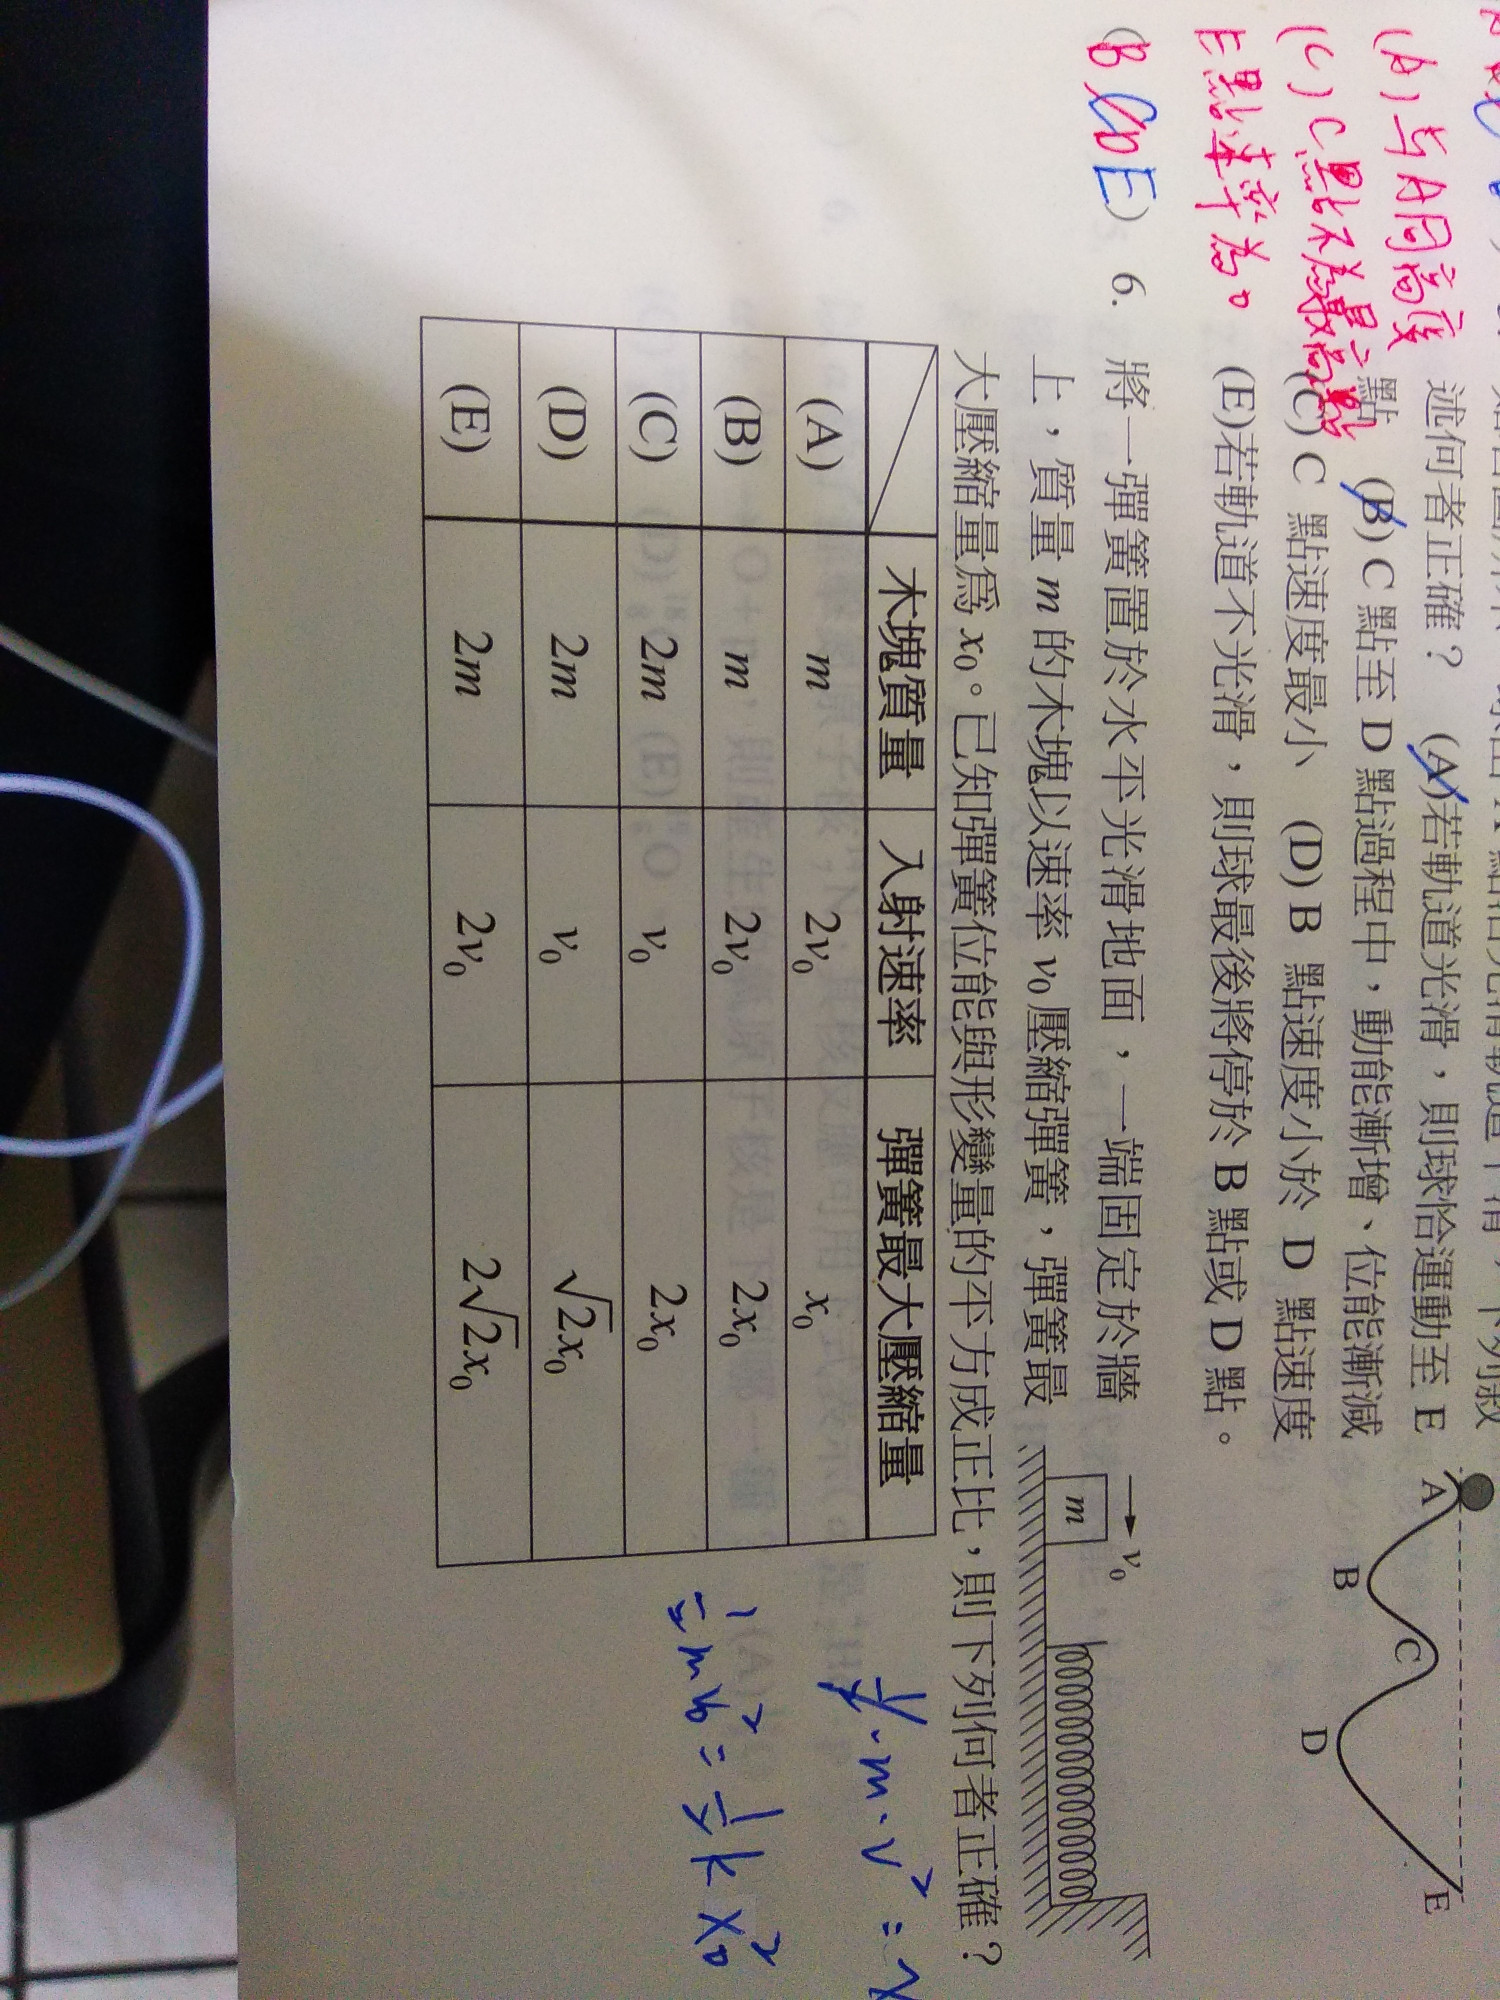 (A)与A同高度
(C)C點不為最高點
E點速率為0
述何者正確？ (A)若軌道光滑，則球恰運動至 E
點 (B) C 點至 D 點過程中，動能漸增、位能漸減
(C) C 點速度最小 (D) B 點速度小於 D 點速度
(E)若軌道不光滑，則球最後將停於 B 點或 D 點。
A
B
C
D
E
(BDE) 6. 將一彈簧置於水平光滑地面，一端固定於牆
上，質量 m 的木塊以速率 v₀ 壓縮彈簧，彈簧最
大壓縮量為 x₀。已知彈簧位能與形變量的平方成正比，則下列何者正確？
v₀
m
木塊質量 入射速率 彈簧最大壓縮量
(A) m 2v₀ x₀
(B) m 2v₀ 2x₀
(C) 2m v₀ 2x₀
(D) 2m v₀ √2x₀
(E) 2m 2v₀ 2√2x₀